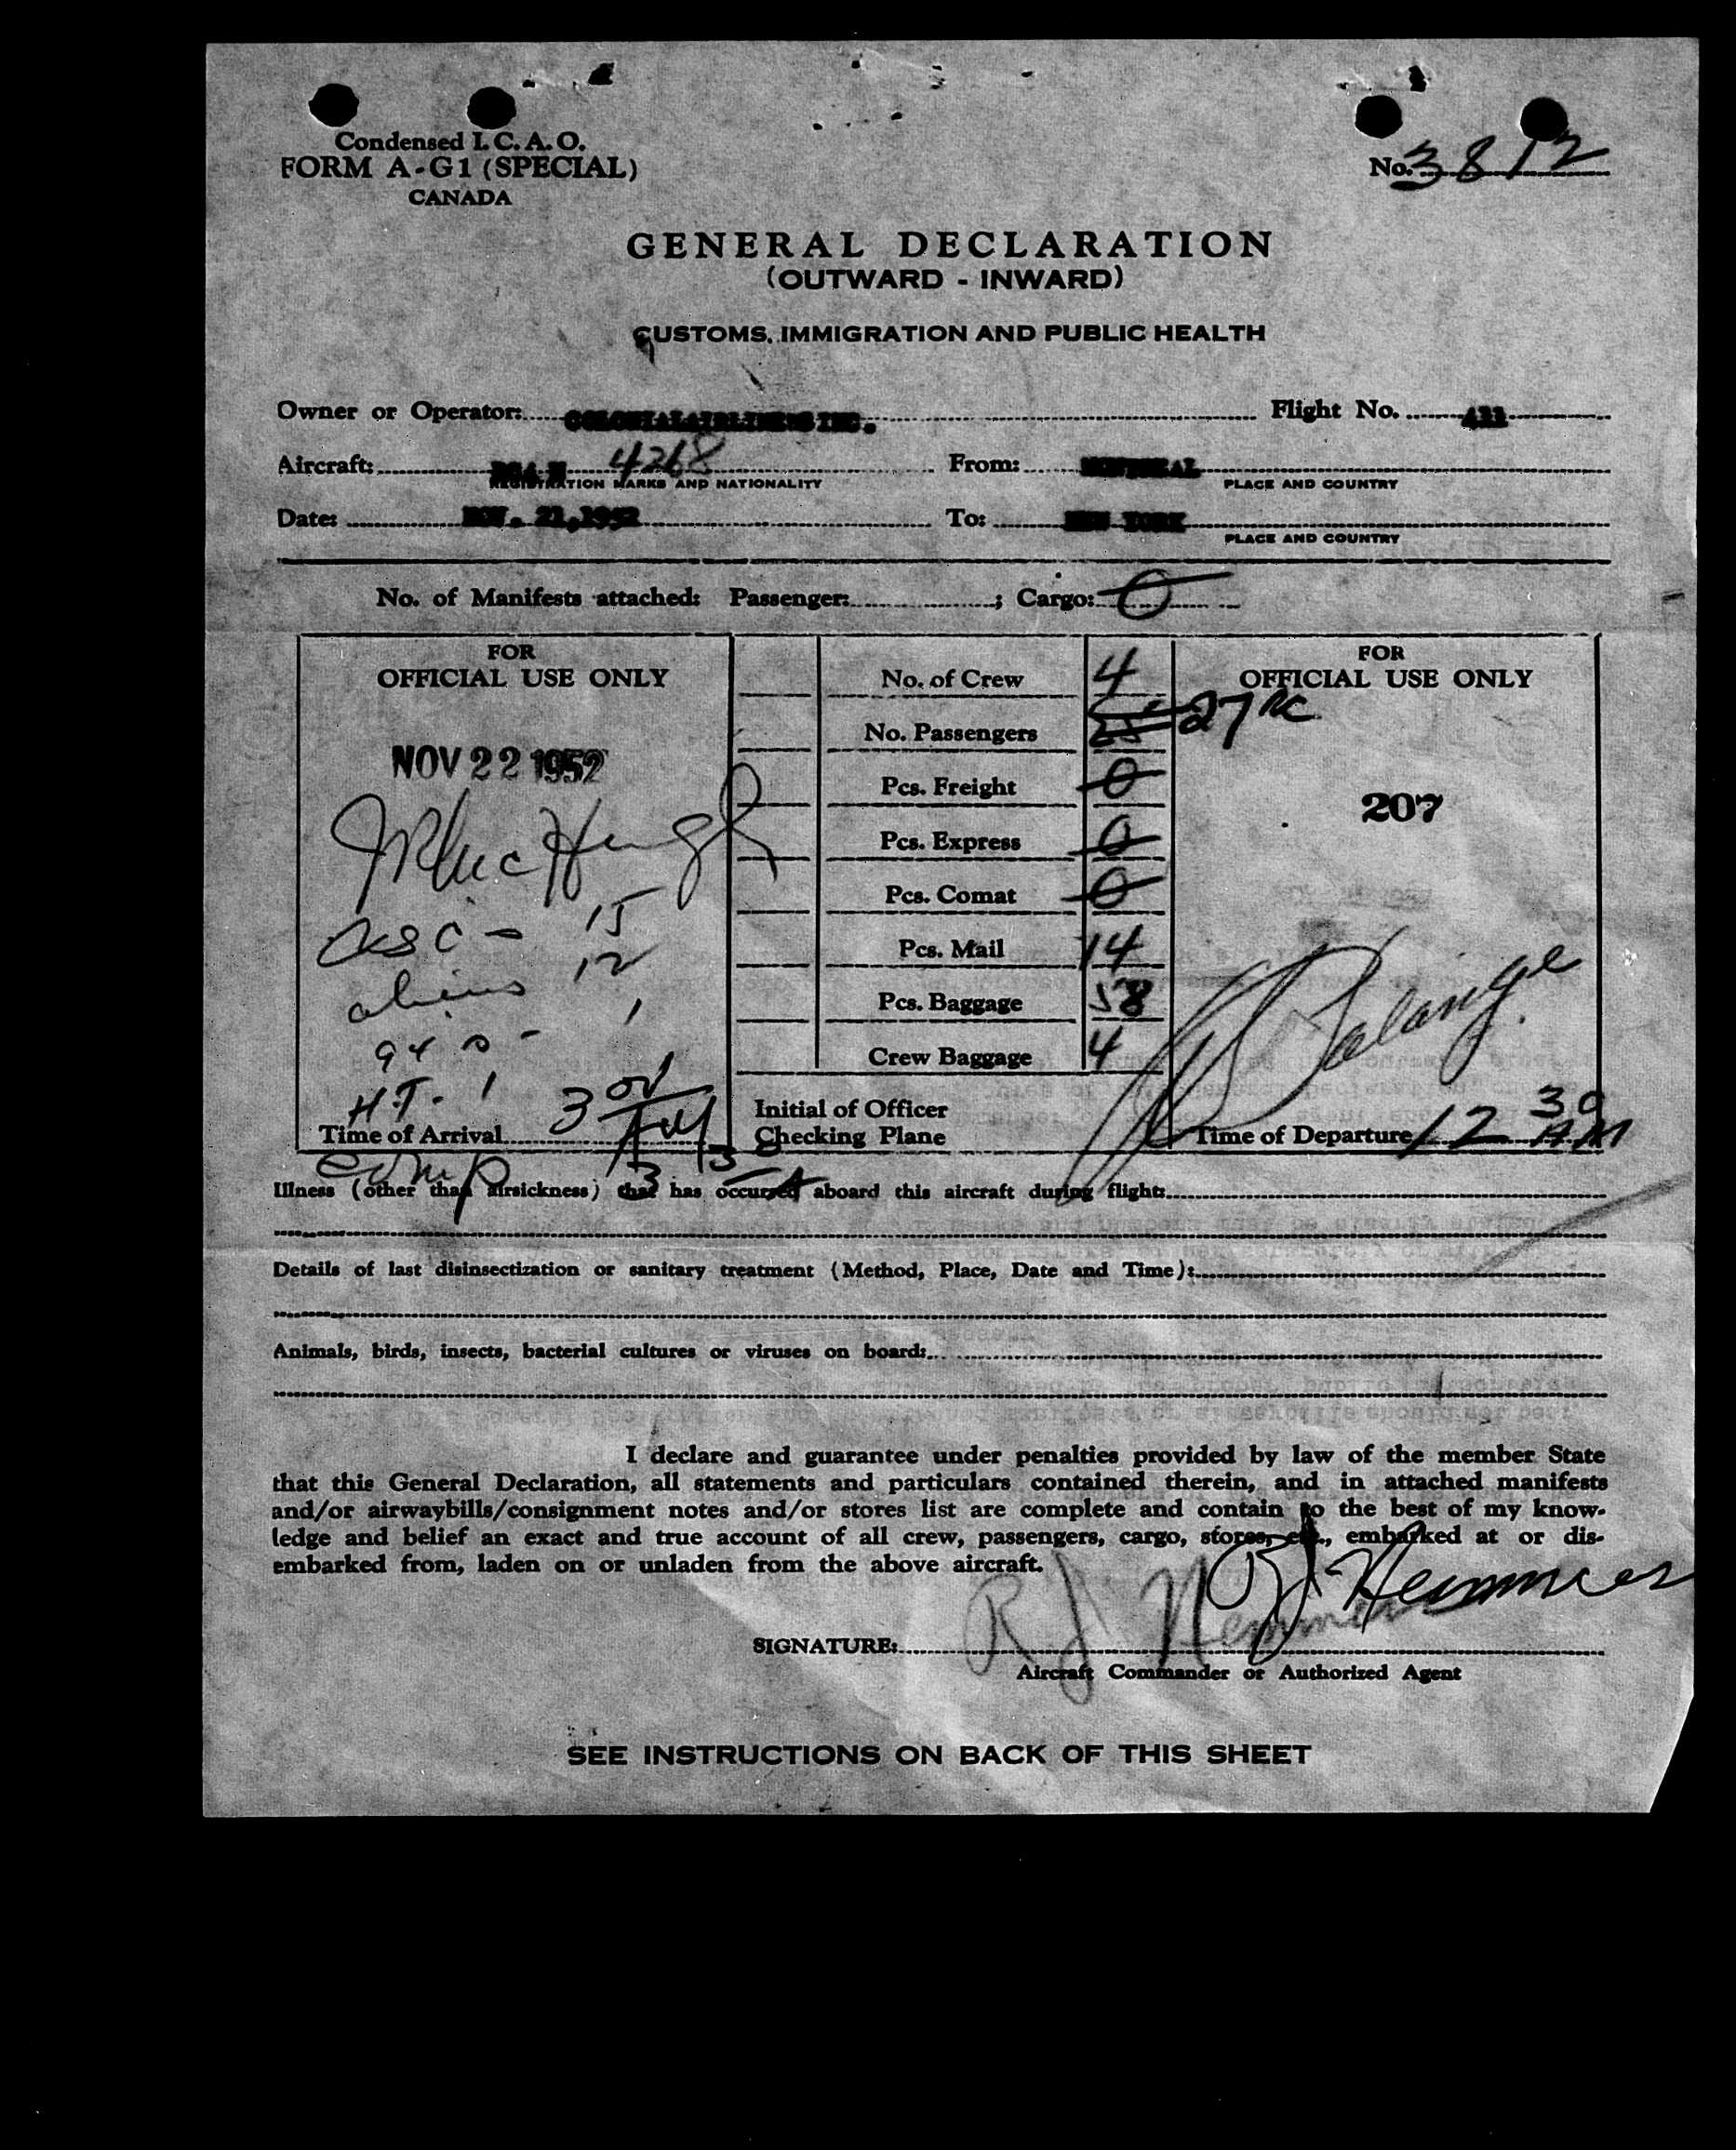 Condensed I. C. A. O.
FORM A-G1 (SPECIAL)
CANADA
No. 3812
GENERAL DECLARATION
(OUTWARD - INWARD)
CUSTOMS, IMMIGRATION AND PUBLIC HEALTH
Owner or Operator: COLONIAL AIRLINES INC. Flight No.
Aircraft: 4268 From: MONTREAL
REGISTRATION MARKS AND NATIONALITY PLACE AND COUNTRY
Date: NOV. 21, 1952 To: NEW YORK
PLACE AND COUNTRY
No. of Manifests attached: Passenger: ; Cargo: 0
FOR
OFFICIAL USE ONLY
NOV 22 1952
USC - 15
aliens 12
1
H.T. - 1
Time of Arrival 3
No. of Crew 4
No. Passengers 27
Pcs. Freight 0
Pcs. Express 0
Pcs. Comat 0
Pcs. Mail 14
Pcs. Baggage 58
Crew Baggage 4
Initial of Officer
Checking Plane
FOR
OFFICIAL USE ONLY
207
Time of Departure 12 30 AM
Illness (other than airsickness) that has occurred aboard this aircraft during flight:
Details of last disinsectization or sanitary treatment (Method, Place, Date and Time):
Animals, birds, insects, bacterial cultures or viruses on board:
I declare and guarantee under penalties provided by law of the member State
that this General Declaration, all statements and particulars contained therein, and in attached manifests
and/or airwaybills/consignment notes and/or stores list are complete and contain to the best of my know-
ledge and belief an exact and true account of all crew, passengers, cargo, stores, etc., embarked at or dis-
embarked from, laden on or unladen from the above aircraft.
SIGNATURE: R J Hemmer
Aircraft Commander or Authorized Agent
SEE INSTRUCTIONS ON BACK OF THIS SHEET